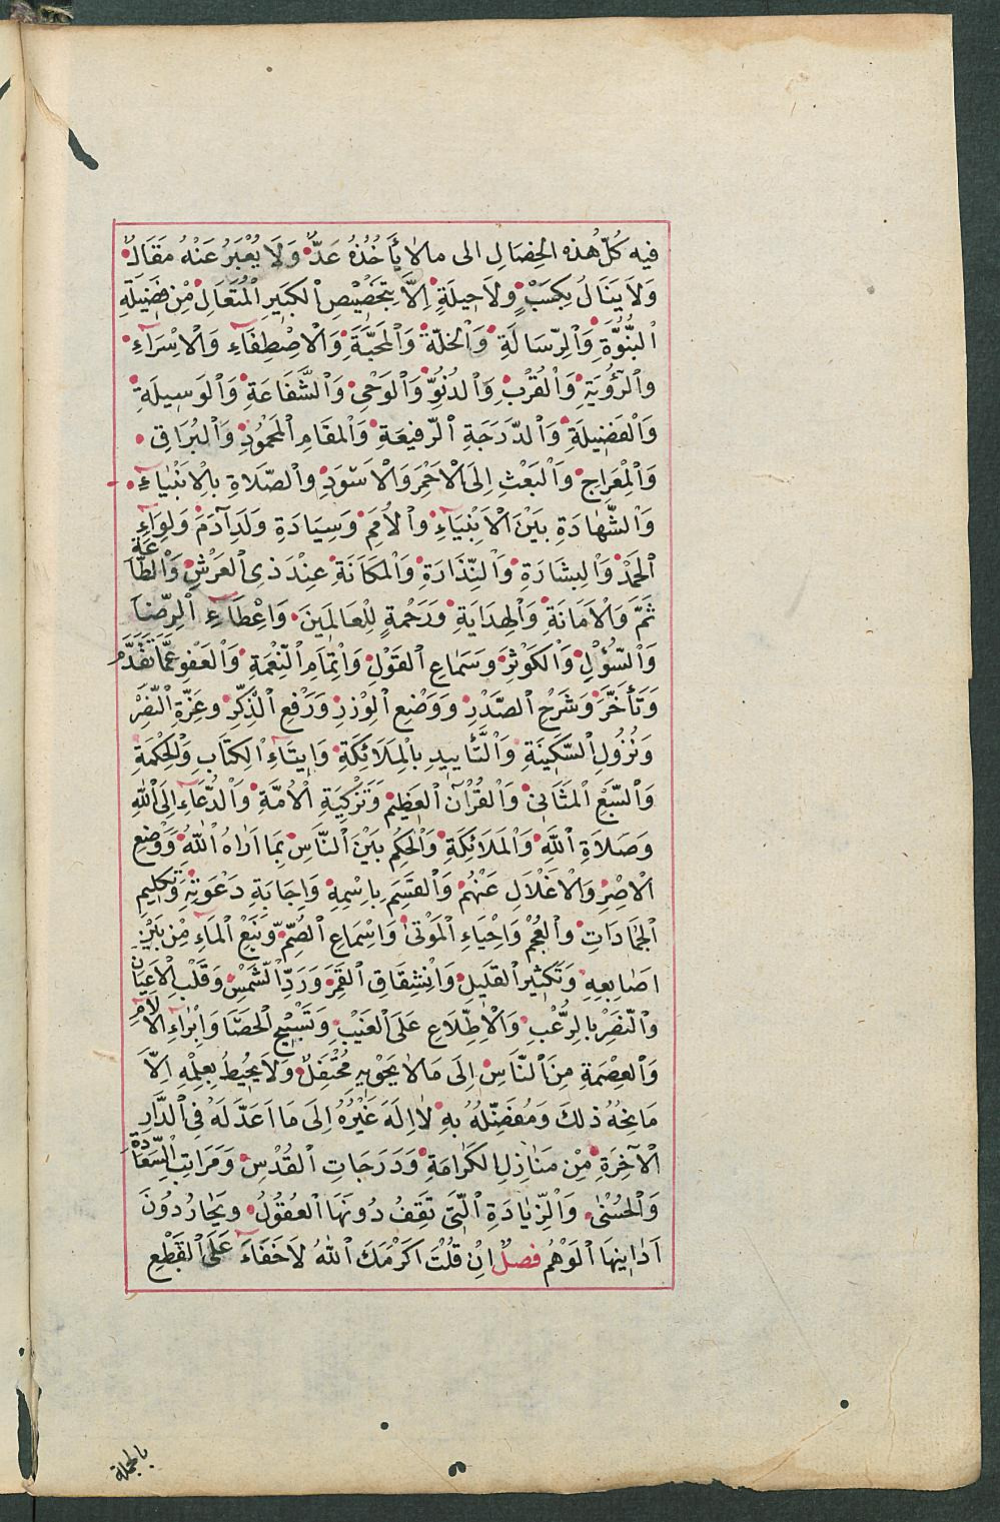 فيه كُلّ هٰذه الخِصَالِ الى مالا يَأْخُذُهُ عَدٌّ وَلَا يُعْبَرُ عَنْهُ مَقَالٌ
وَلَا يَنَالُ بِكَسْبٍ وَلَا حِيلَةٍ اِلَّا بِتَخْصِيْصِ الكَبِيرِ الْمُتَعَالِ مِنْ فَضِيلَةِ
النُّبُوَّةِ وَالرِّسَالَةِ وَالْخُلَّةِ وَالْمَحَبَّةِ وَالْاِصْطِفَاءِ وَالْاِسْرَاءِ
والرُّؤْيَةِ وَالْقُرْبِ وَالدُّنُوِّ وَالْوَحْىِ وَالشَّفَاعَةِ وَالْوَسِيلَةِ
وَالْفَضِيلَةِ وَالدَّرَجَةِ الرَّفِيعَةِ وَالْمَقَامِ الْمَحْمُودِ وَالْبُرَاقِ
وَالْمِعْرَاجِ وَالْبَعْثِ اِلَى الْاَحْمَرِ وَالْاَسْوَدِ والصَّلَاةِ بالْاَنْبِيَاءِ
وَالشَّهَادَةِ بَيْنَ الْاَنْبِيَاءِ والْاُمَمِ وَسِيَادَةِ وَلَدِ آدَمَ وَلِوَاءِ
الْحَمْدِ وَالْبِشَارَةِ وَالنِّذَارَةِ وَالْمَكَانَةِ عِنْدَ ذِى الْعَرْشِ وَالطَّاعَةِ
ثَمَّ وَالْاَمَانَةِ وَالْهِدَايَةِ وَرَحْمَةٍ لِلْعَالَمِينَ وَاِعْطَاءِ الرِّضَا
وَالسُّؤْلِ وَالْكَوْثَرِ وَسَمَاعِ الْقَوْلِ وَاِتْمَامِ النِّعْمَةِ وَالْعَفْوِ عَمَّا تَقَدَّمَ
وَتَأَخَّرَ وَشَرْحِ الصَّدْرِ وَوَضْعِ الْوِزْرِ وَرَفْعِ الذِّكْرِ وعِزَّةِ النَّصْرِ
وَنُزُولِ السَّكِينَةِ وَالتَّأْيِيدِ بالْمَلَائِكَةِ وَاِيتَاءِ الْكِتَابِ وَالْحِكْمَةِ
وَالسَّبْعِ الْمَثَانِى وَالْقُرْآنِ الْعَظِيمِ وَتَزْكِيَةِ الْاُمَّةِ وَالدُّعَاءِ اِلَى اللهِ
وَصَلَاةِ اللهِ وَالْمَلَائِكَةِ وَالْحُكْمِ بَيْنَ النَّاسِ بِمَا اَرَاهُ اللهُ وَوَضْعِ
الْاِصْرِ وَالْاَغْلَالِ عَنْهُمْ وَالْقَسَمِ بِاسْمِهِ وَاِجَابَةِ دَعْوَتِهِ وَتَكْلِيمِ
الْجَمَادَاتِ والْعُجْمِ وَاِحْيَاءِ الْمَوْتَى وَاِسْمَاعِ الصُّمِّ وَنَبْعِ الْمَاءِ مِنْ بَيْنِ
اصَابِعِهِ وَتَكْثِيرِ الْقَلِيلِ وَانْشِقَاقِ الْقَمَرِ وَرَدِّ الشَّمْسِ وَقَلْبِ الْاَعْيَانِ
والنَّصْرِ بالرُّعْبِ وَالْاِطِّلَاعِ عَلَى الْغَيْبِ وَتَسْبِيحِ الْحَصَا وَاِبْرَاءِ الْآلَامِ
وَالْعِصْمَةِ مِنَ النَّاسِ اِلَى مَالا يَحْوِيهِ مُحْتَفِلٌ وَلَا يُحِيطُ بِعِلْمِهِ اِلَّا
مَانِحُهُ ذٰلِكَ وَمُفَضِّلُهُ بِهِ لَا اِلَهَ غَيْرُهُ اِلَى مَا اَعَدَّ لَهُ فِى الدَّارِ
الْآخِرَةِ مِنْ مَنَازِلِ الْكَرَامَةِ وَدَرَجَاتِ الْقُدْسِ وَمَرَاتِبِ السَّعَادَةِ
وَالْحُسْنَى وَالزِّيَادَةِ الَّتِى تَقِفُ دُونَهَا الْعُقُولُ وَيَحَارُ دُونَ
اَدَانِيهَا الْوَهْمُ فصلٌ اِنْ قُلْتَ اَكْرَمَكَ اللهُ لَا خَفَاءَ عَلَى الْقَطْعِ
بالجملة